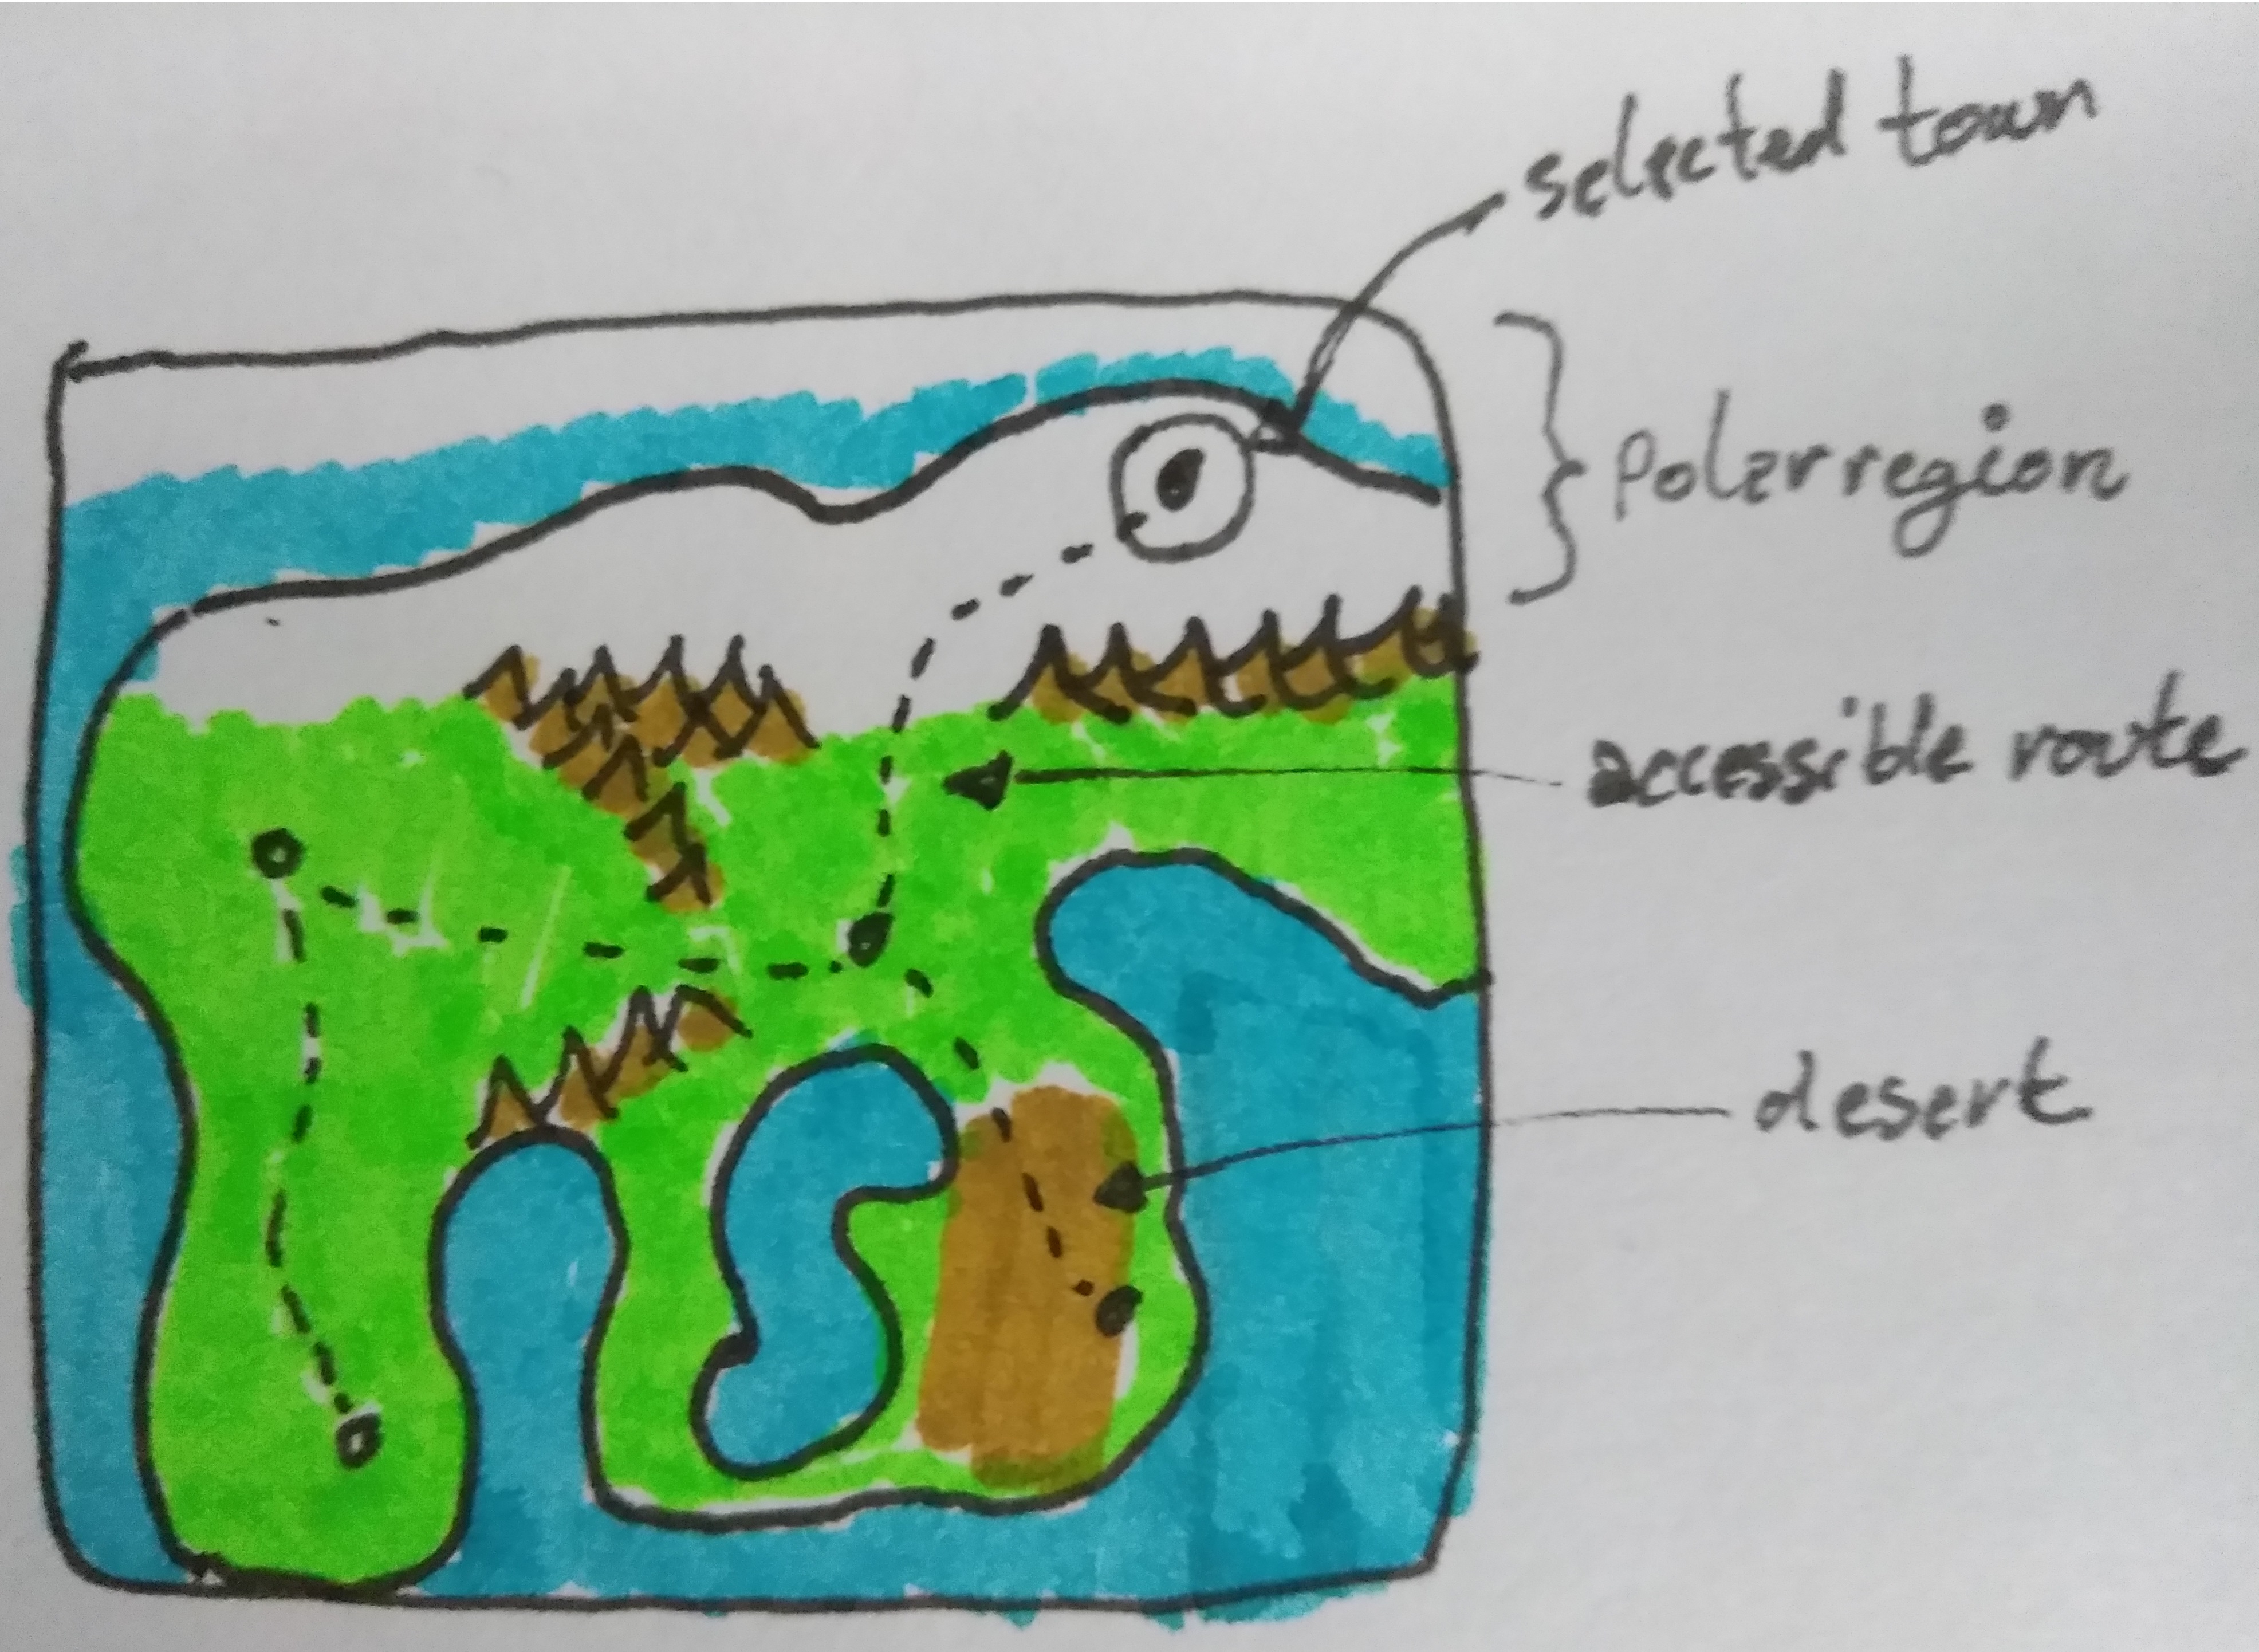 selected town
Polar region
accessible route
desert